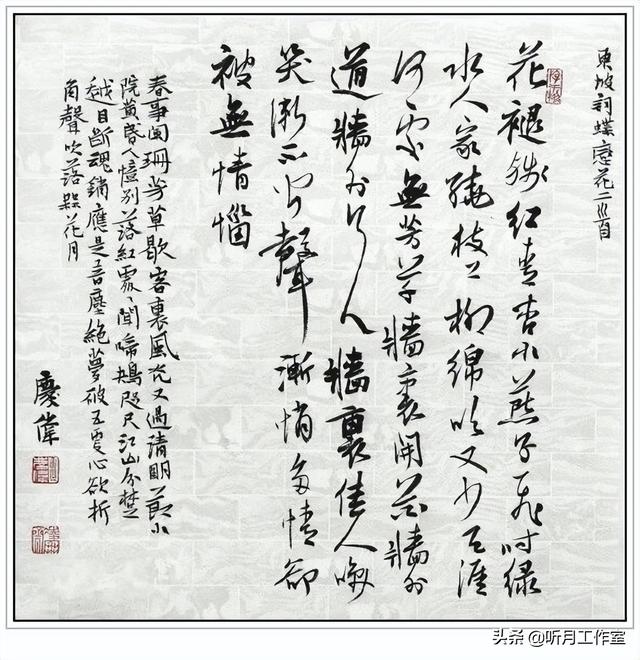 東坡詞蝶戀花二首
花褪殘紅青杏小燕子飛時綠
水人家繞枝上柳綿吹又少天涯
何處無芳草牆裏開花牆外
道牆外行人牆裏佳人喚
笑漸不聞聲漸悄多情卻
被無情惱
春事闌珊芳草歇客裏風光又過清明節小
院黃昏人憶別落紅處處聞啼鴂咫尺江山分楚
越目斷魂銷應是音塵絕夢破五更心欲折
角聲吹落梅花月
慶偉
头条 @听月工作室